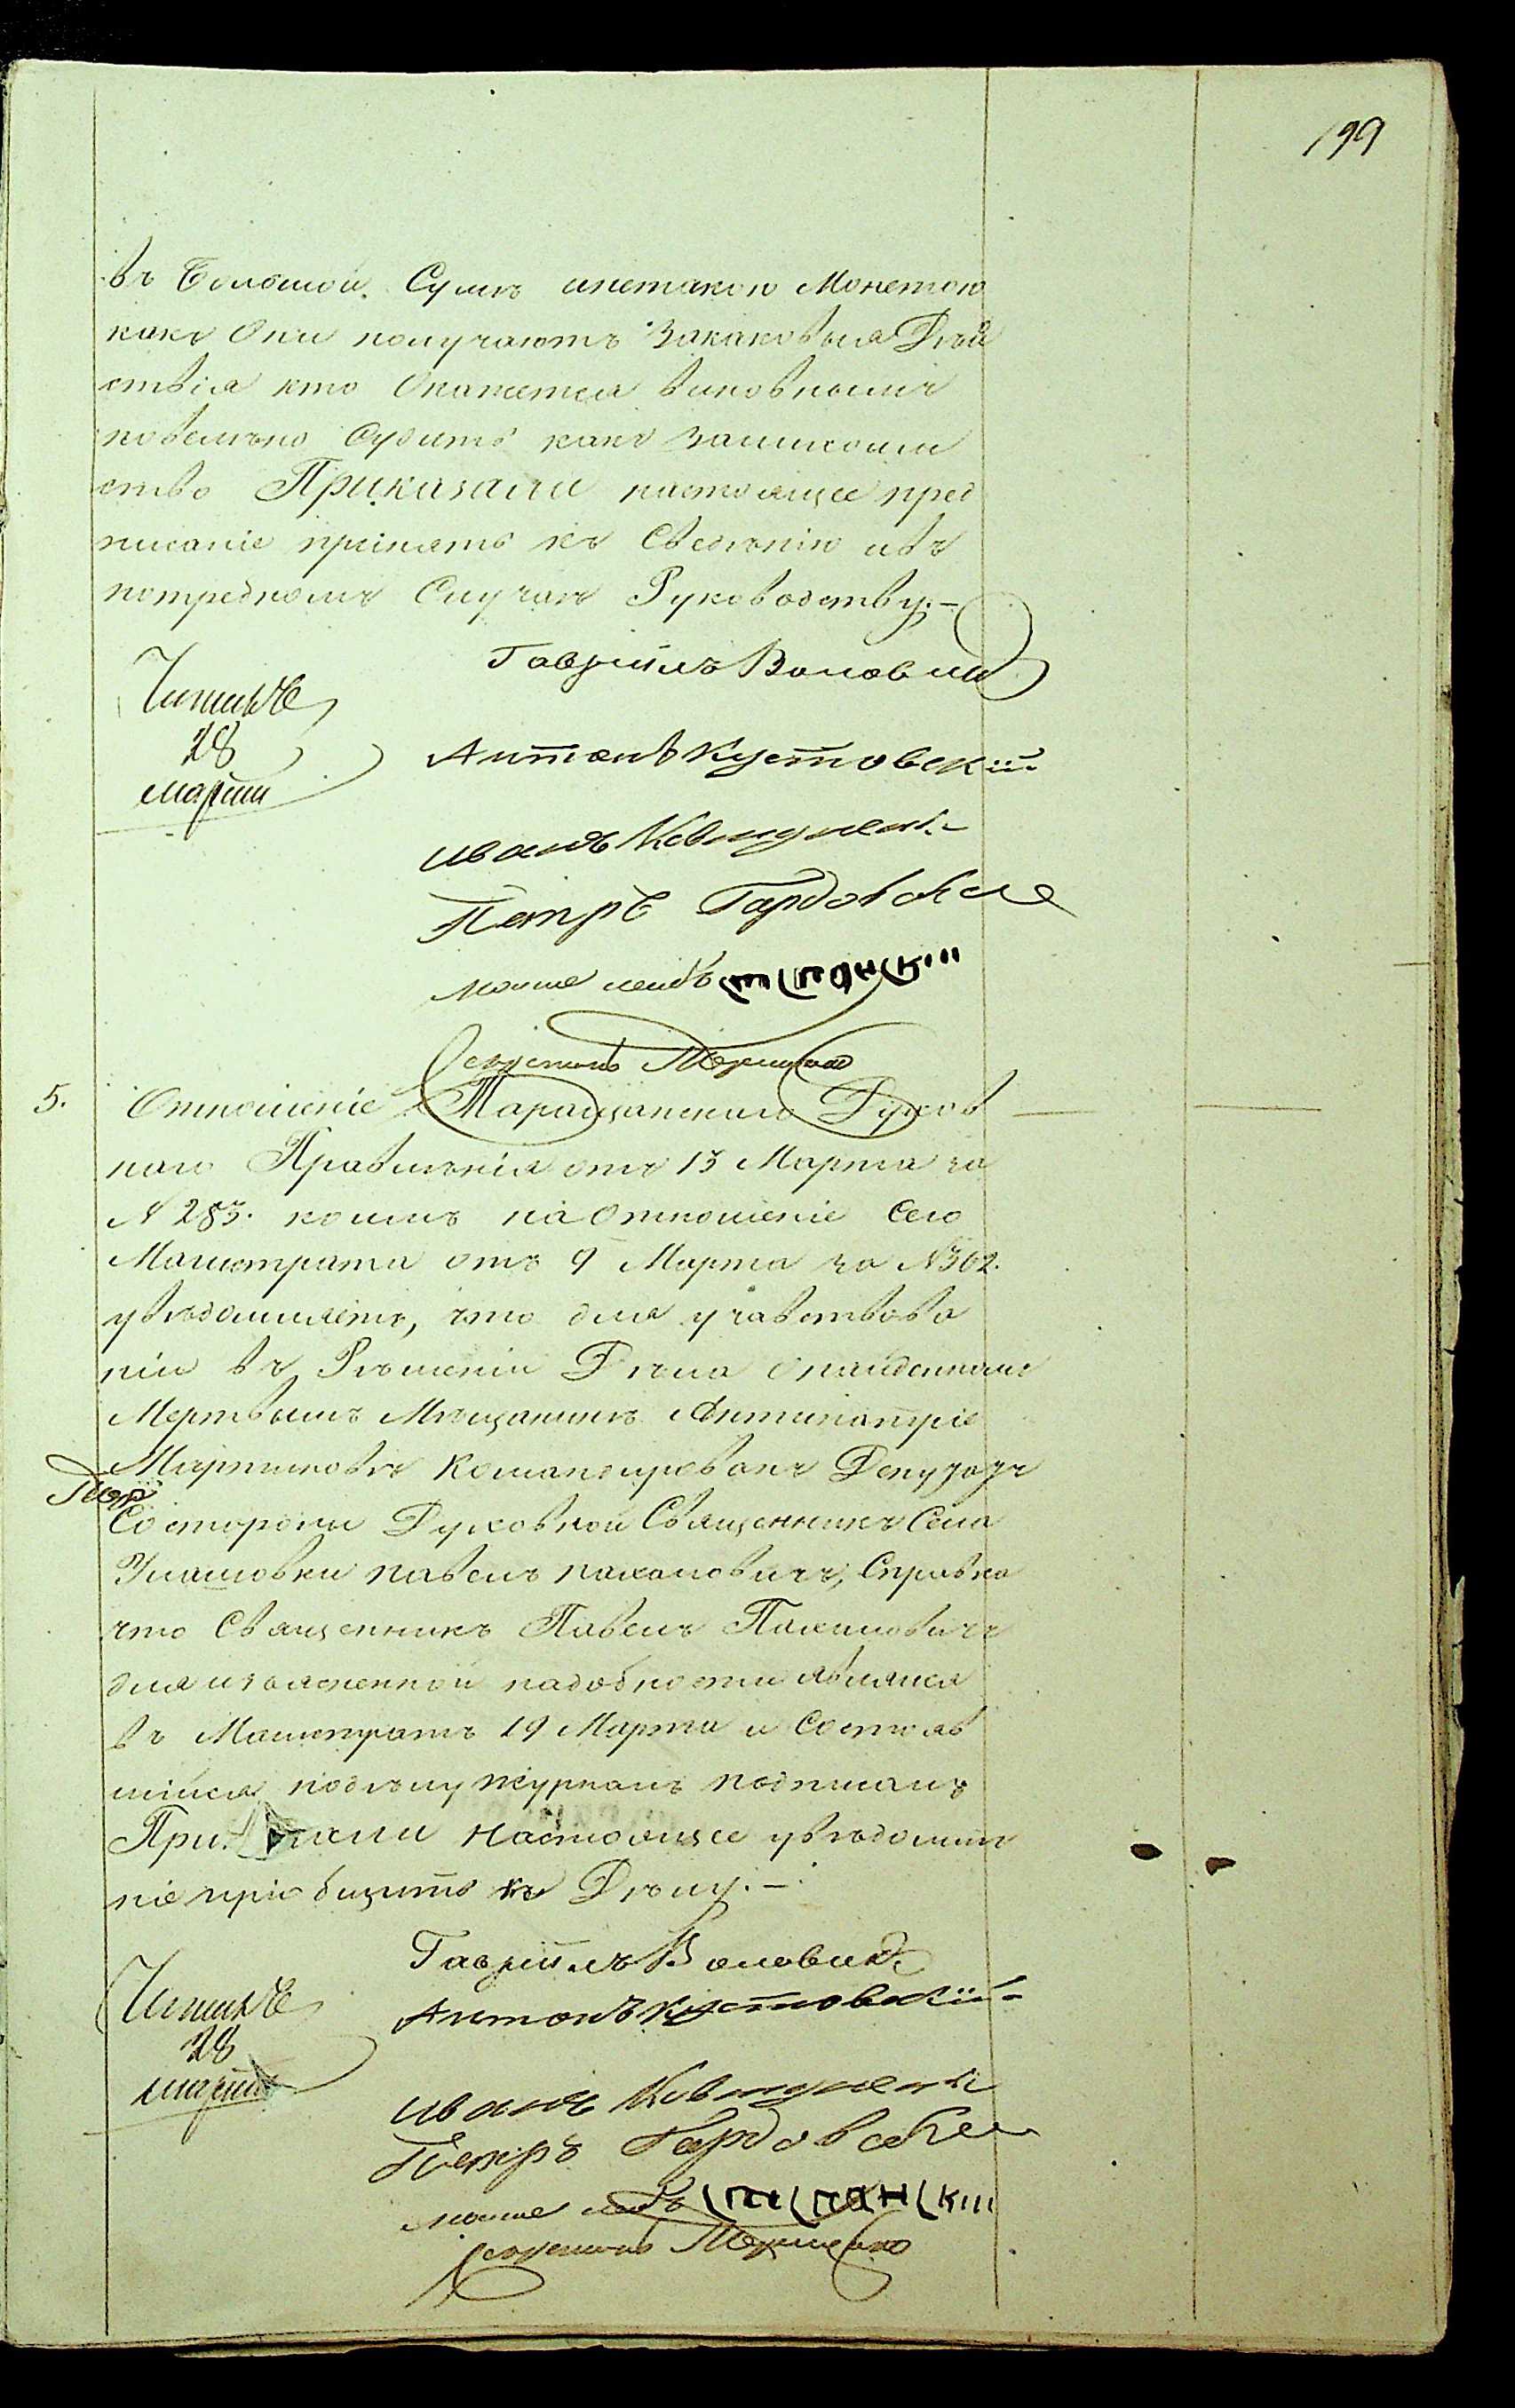 199
въ большой Сумѣ инетакою Монетою
какъ Они получаютъ Закаковыя Дѣй
ствія кто Окажется виновнымъ
повелѣно Судить какъ залихоим
ство Приказали настоящее пред
писаніе принять къ Сведѣнію ивъ
потребномъ Случаѣ Руководству.—
Гавріилъ Воловик
Читалъ
28
марта
Антонъ Кустовскій
иванъ Ковтуненко
Петръ Гардовскі
мошко лейбъ
Секретарь
5. Отношеніе Таращанскаго Духов
наго Правленія отъ 13 Марта за
№ 283. коимъ на Отношеніе Сего
Магистрата отъ 9 Марта за № 362.
увѣдомляетъ, что для участвова
нія въ Рѣшеніи Дѣла Онайденномъ
Мертвымъ Мѣщанинѣ Антипатріе
Мартыновѣ Командированъ Депутатъ
Состороны Духовной Священникъ Села
Улашовки павелъ пахаловичъ, Справка
что Священникъ Павелъ Пахаловичъ
для изъясненной надобности являлся
въ Магистратъ 19 Марта и Состояв
шійся подѣлу журналъ подписалъ
Приказали Настоящее увѣдомле
ніе пріобщить къ Дѣлу.—
Гавріилъ Воловик
Читалъ
28
марта
Антонъ Кустовскій
иванъ Ковтуненко
Петръ Гардовскі
мошко лейбъ
Секретарь